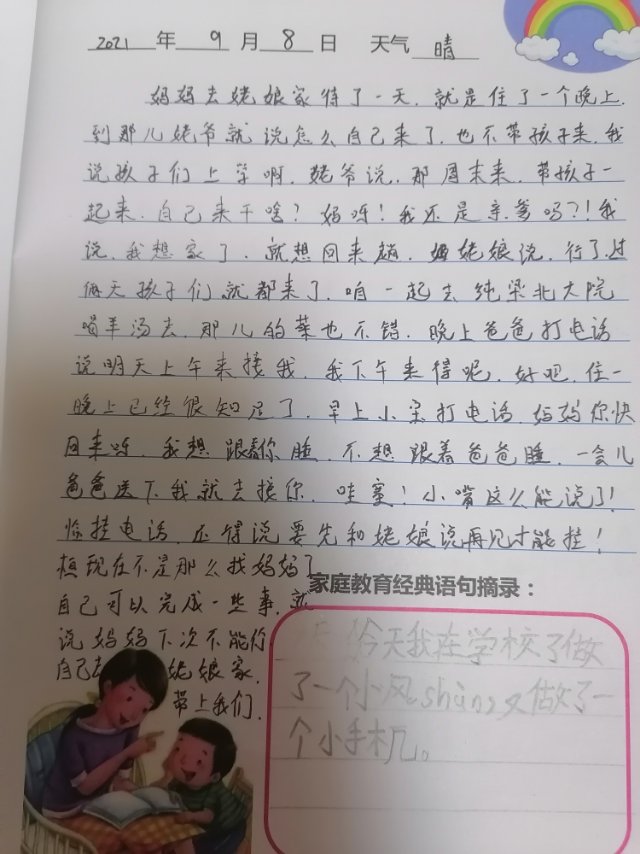 2021 年 9 月 8 日 天气 晴
妈妈去姥娘家待了一天，就是住了一个晚上，
到那儿姥爷就说怎么自己来了，也不带孩子来，我
说孩子们上学啊，姥爷说，那周末来，带孩子一
起来，自己来干啥？妈呀！我还是亲爹吗？！我
说，我想家了，就想回来趟，姥娘说，行了，过
俩天孩子们就都来了，咱一起去纯梁北大院
喝羊汤去，那儿的菜也不错，晚上爸爸打电话
说明天上午来接我，我下午来得呢，好吧，住一
晚上已经很知足了，早上小打电话，妈妈你快
回来呀，我想跟着你睡，不想跟着爸爸睡，一会儿
爸爸送下我就去接你，哇塞！小嘴这么能说了！
临挂电话，还得说要先和姥娘说再见才能挂！
现在不是那么找妈妈了
自己可以完成一些事，就
说妈妈下次不能你
自己去姥娘家，
带上我们，
家庭教育经典语句摘录：
今天我在学校了做
了一个小风shàn，又做了一
个小手机。